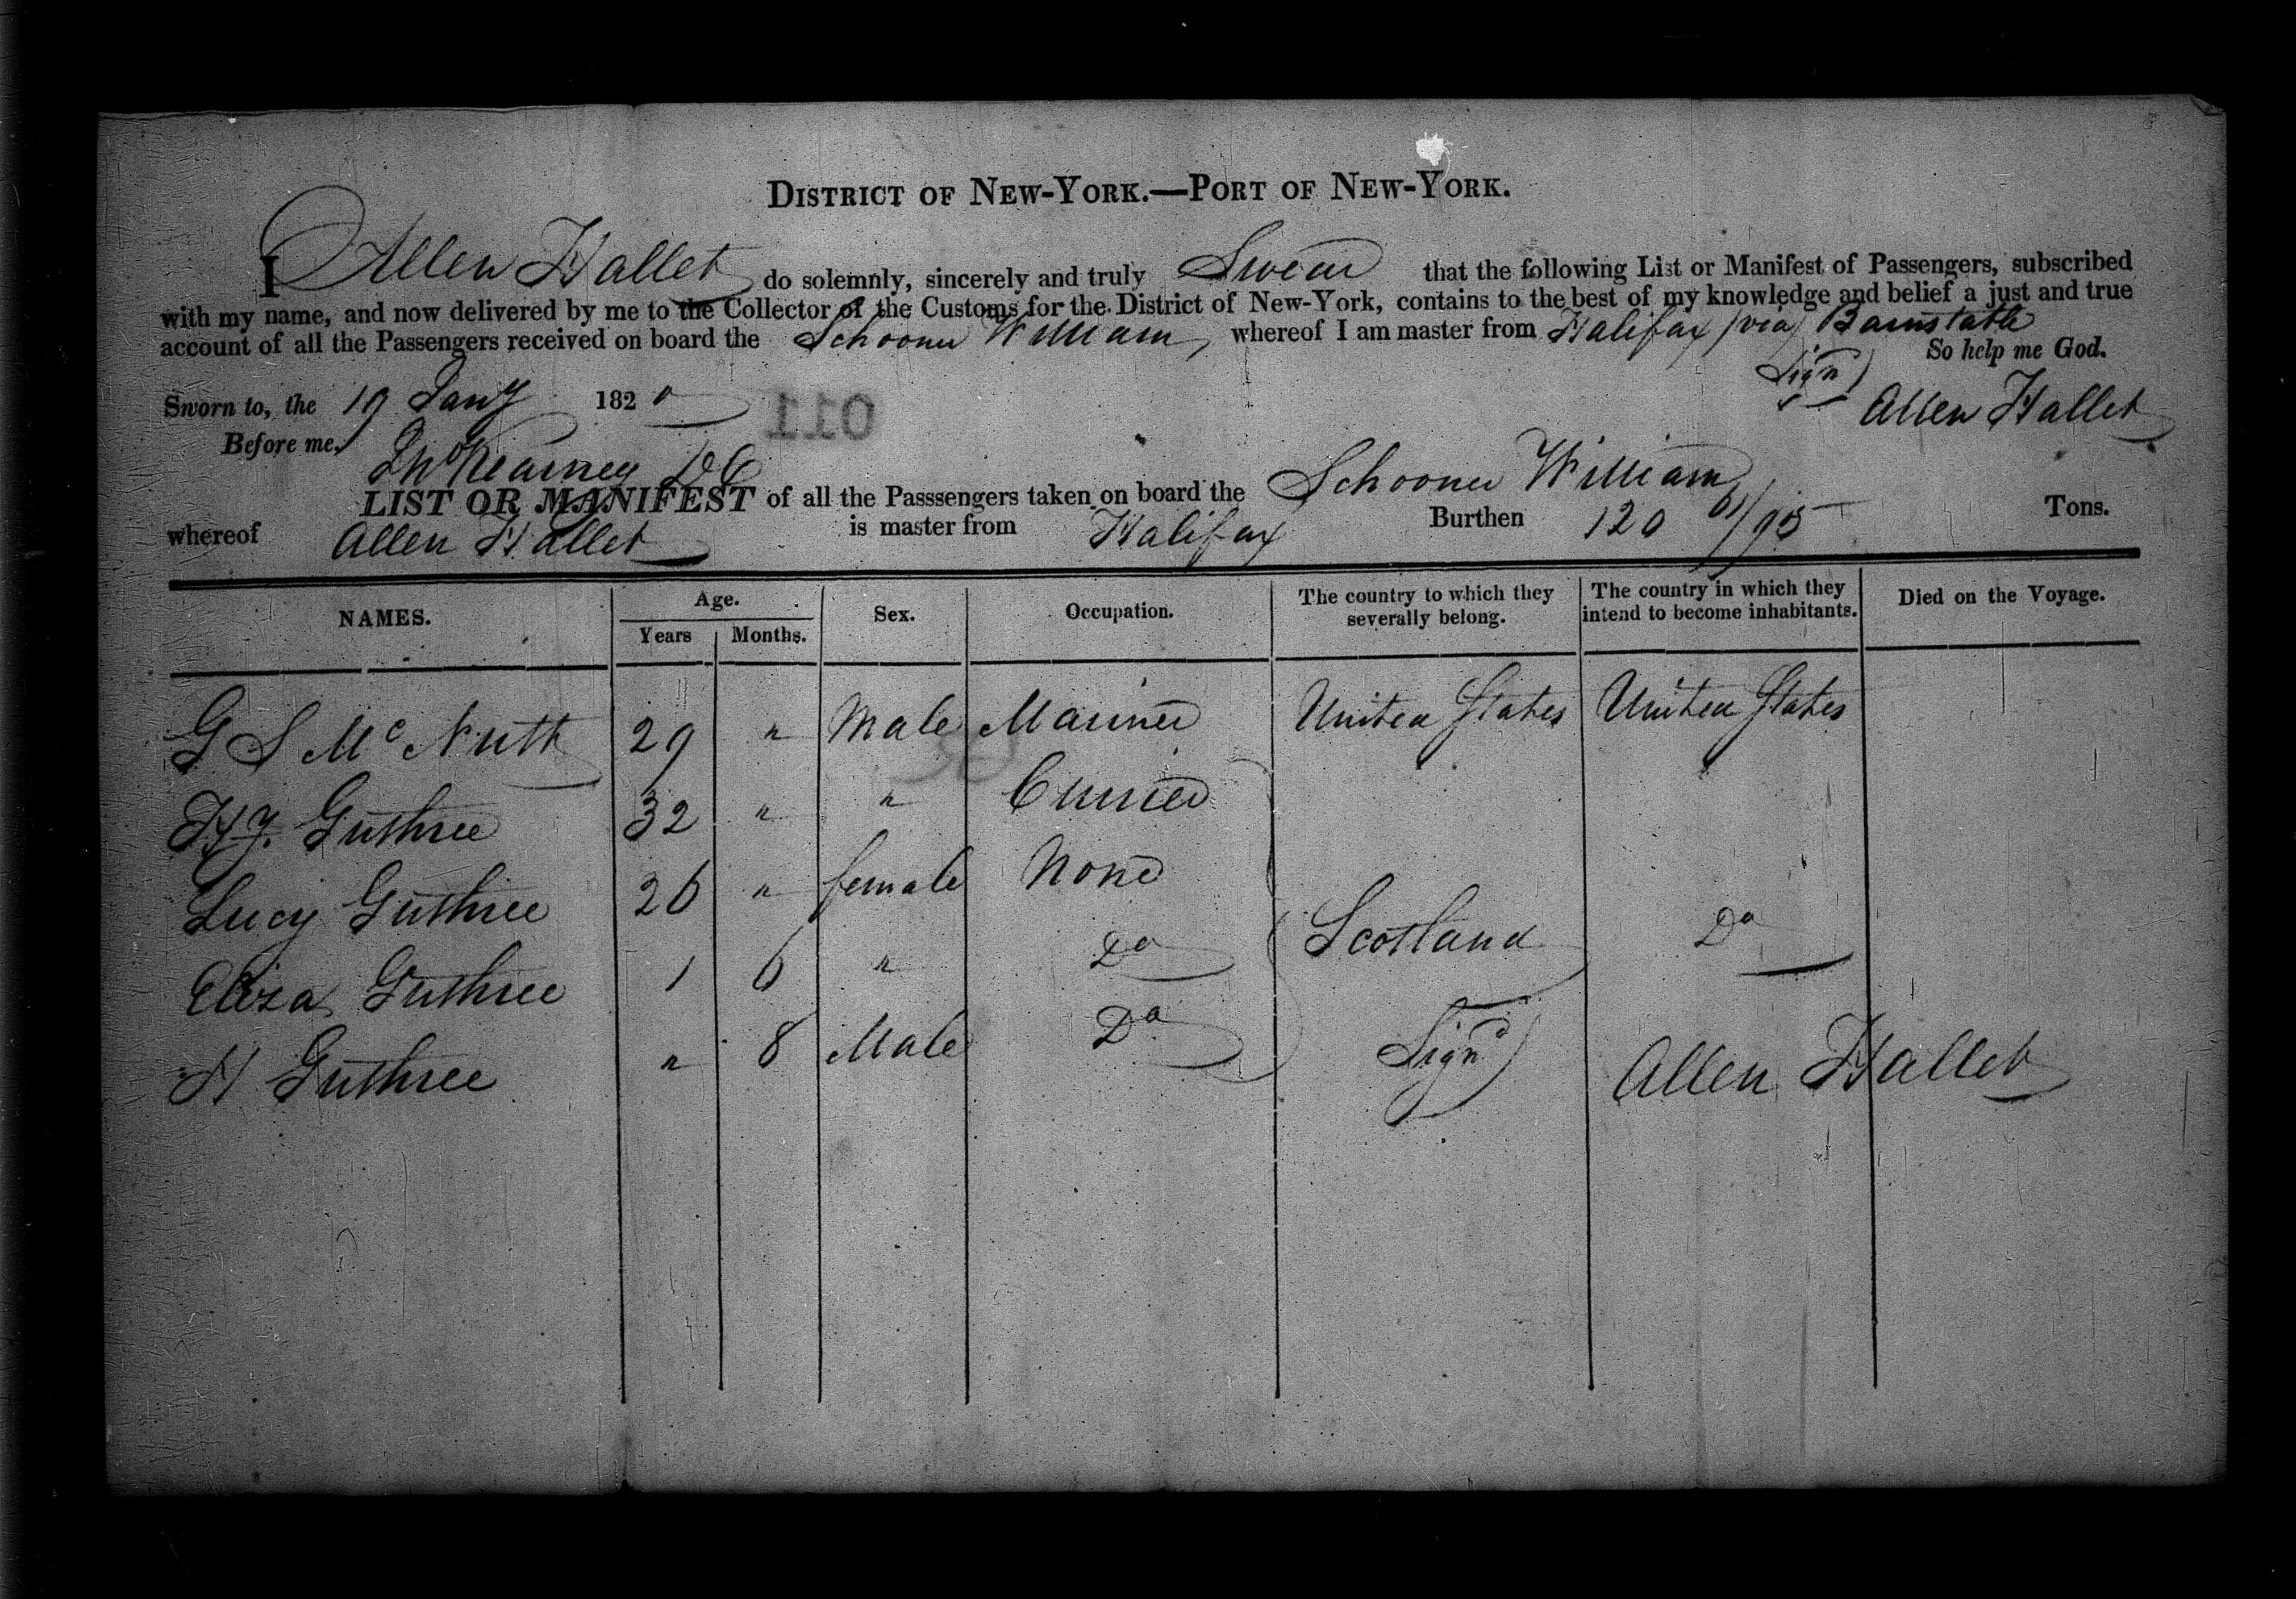 DISTRICT OF NEW-YORK.—PORT OF NEW-YORK.
I Allen Hallet do solemnly, sincerely and truly Swear that the following List or Manifest of Passengers, subscribed
with my name, and now delivered by me to the Collector of the Customs for the District of New-York, contains to the best of my knowledge and belief a just and true
account of all the Passengers received on board the Schooner William, whereof I am master from Halifax (via) Barnstable
So help me God.
Sworn to, the 19 Jany 1820
Signd) Allen Hallet
011
Before me,
LIST OR MANIFEST of all the Passsengers taken on board the Schooner William
whereof Allen Hallet is master from Halifax Burthen 120 61/95 Tons.
NAMES. Age. Years Months. Sex. Occupation. The country to which they severally belong. The country in which they intend to become inhabitants. Died on the Voyage.
G S McNutt 29 " Male Mariner United States United States
Guthree 32 " " Currier
Lucy Guthree 26 " female None
Scotland Do
Eliza Guthree 1 6 " Do
H Guthree " 8 Male Do
Signd) Allen Hallet